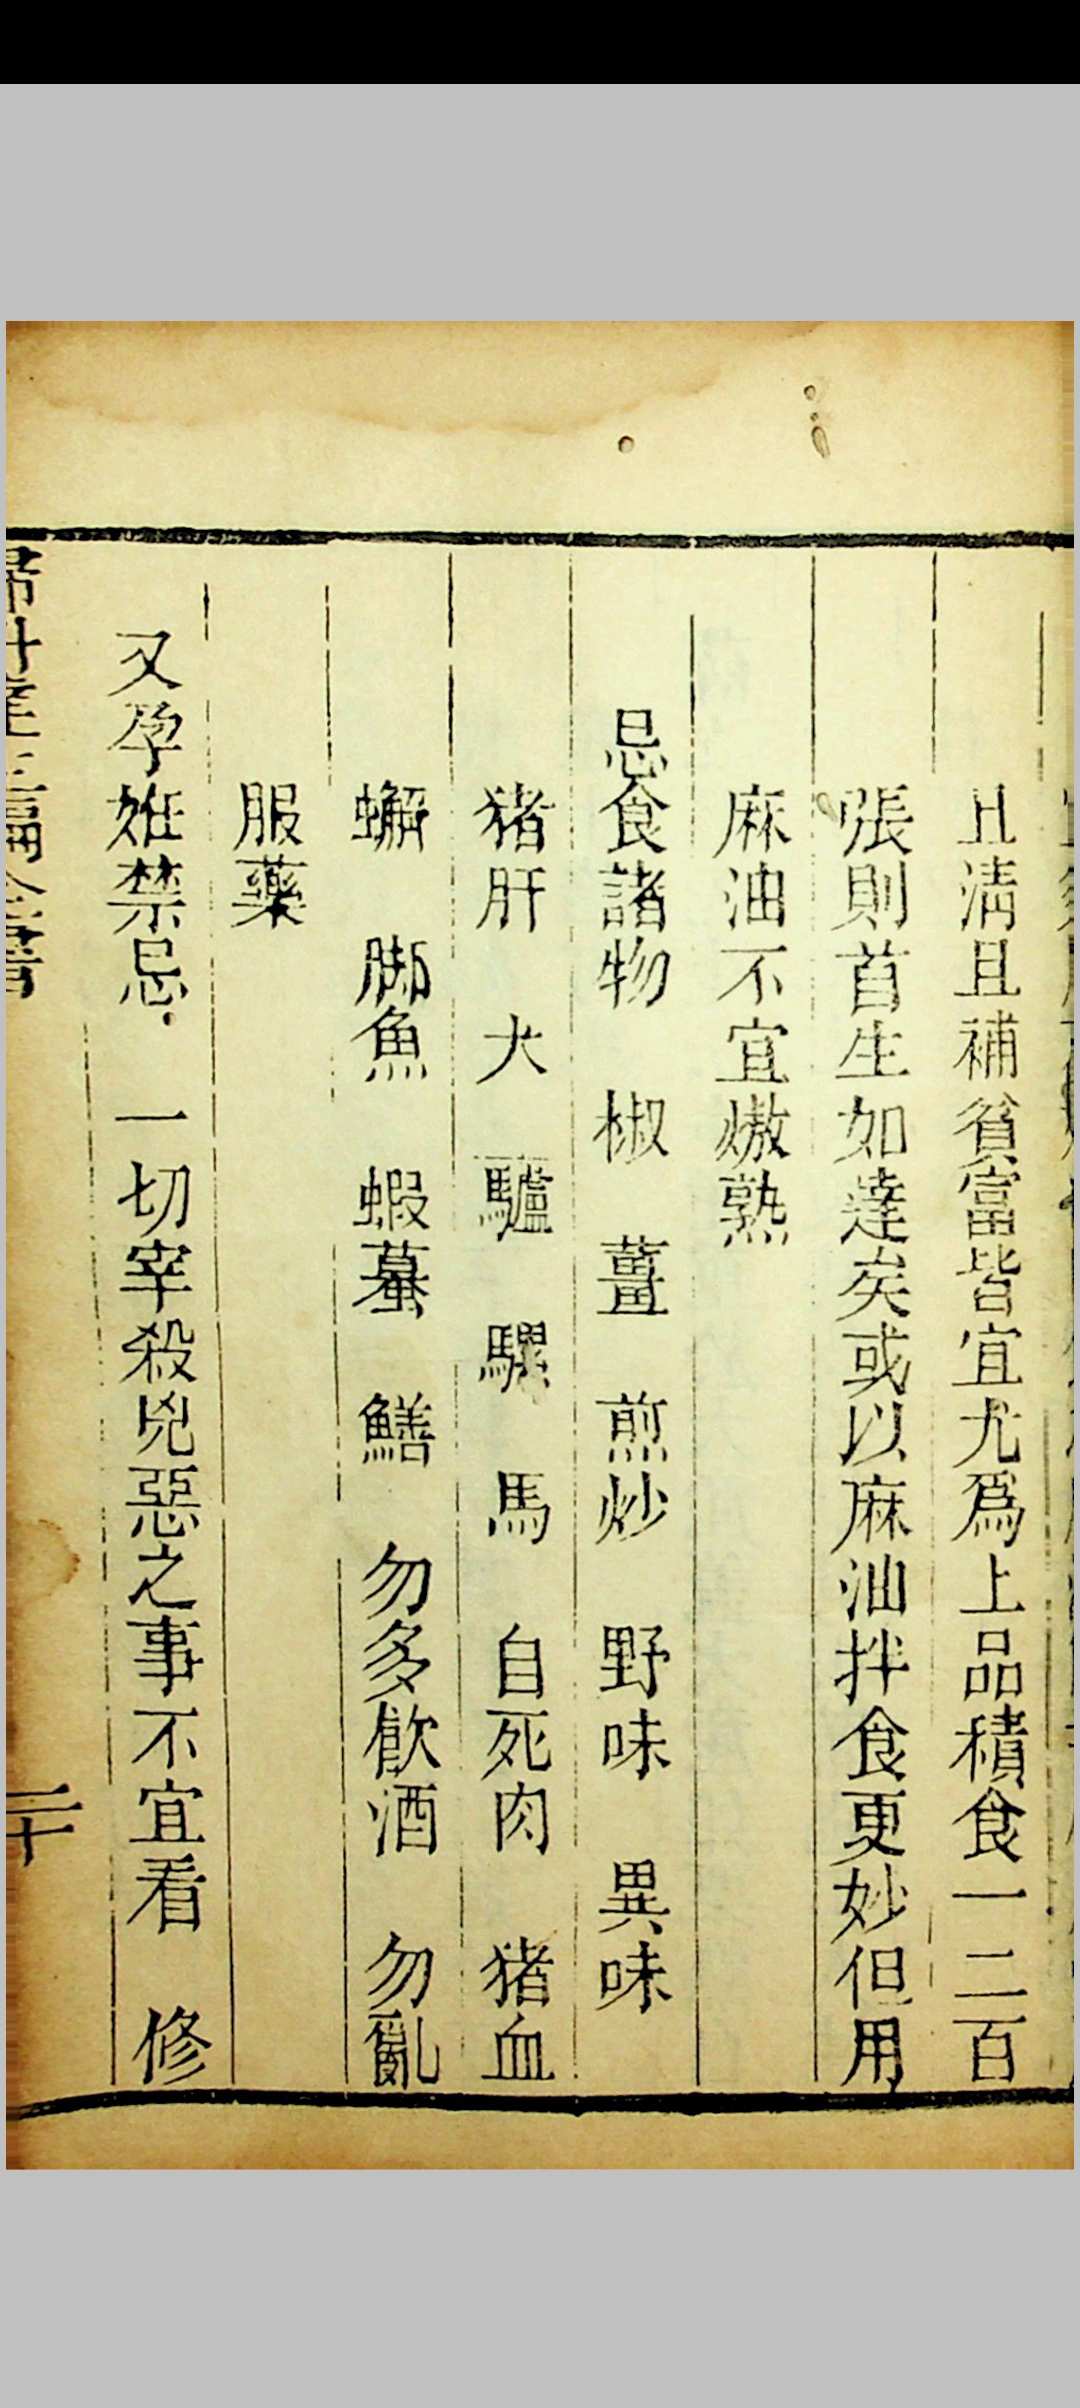 且清且補貧富皆宜尤爲上品積食一二百
張則首生如達矣或以麻油拌食更妙但用
麻油不宜熬熟
忌食諸物　椒　薑　煎炒　野味　異味
猪肝　犬　驢　騾　馬　自死肉　猪血
蠏　脚魚　蝦蟇　鱔　勿多飮酒　勿亂
服藥
又孕姙禁忌　一切宰殺兇惡之事不宜看　修
二十